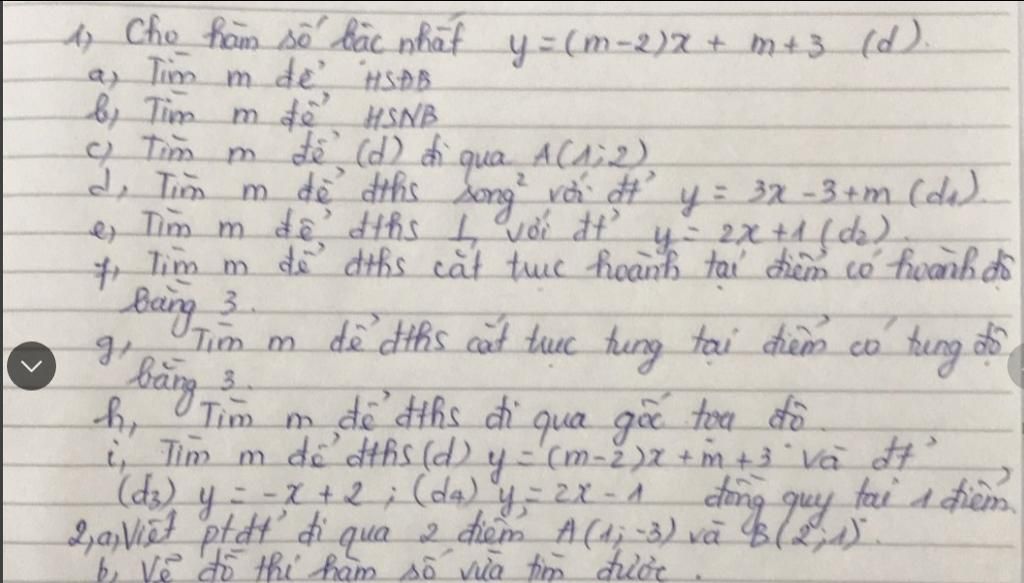 1, Cho hàm số bậc nhất y = (m-2)x + m+3 (d).
a, Tìm m để HSĐB
b, Tìm m để HSNB
c, Tìm m để (d) đi qua A(1;2)
d, Tìm m để đths song² với đt' y = 3x -3+m (d₁).
e, Tìm m để đths ⊥ với đt' y = 2x+1 (d₂).
f, Tìm m để đths cắt trục hoành tại điểm có hoành độ
bằng 3.
g, Tìm m để đths cắt trục tung tại điểm có tung độ
bằng 3.
h, Tìm m để đths đi qua gốc toạ độ.
i, Tìm m để đths (d) y = (m-2)x + m+3 và đt'
(d₃) y = -x + 2 ; (d₄) y = 2x - 1 đồng quy tại 1 điểm.
2, a, Viết ptđt' đi qua 2 điểm A(1;-3) và B(2;1).
b, Vẽ đồ thị hàm số vừa tìm được.